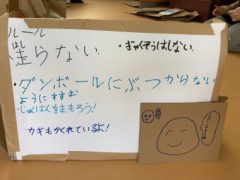 ルール
走らない
・ぎゃくそうはしない
・ダンボールにぶつからない
ようにすすむ
じゅんばんをまもろう!
カギもかくれているよ!